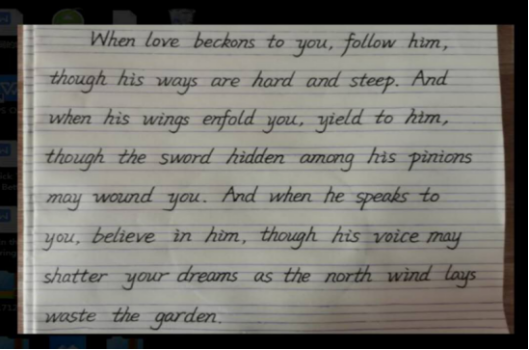 When love beckons to you, follow him,
though his ways are hard and steep. And
when his wings enfold you, yield to him,
though the sword hidden among his pinions
may wound you. And when he speaks to
you, believe in him, though his voice may
shatter your dreams as the north wind lays
waste the garden.